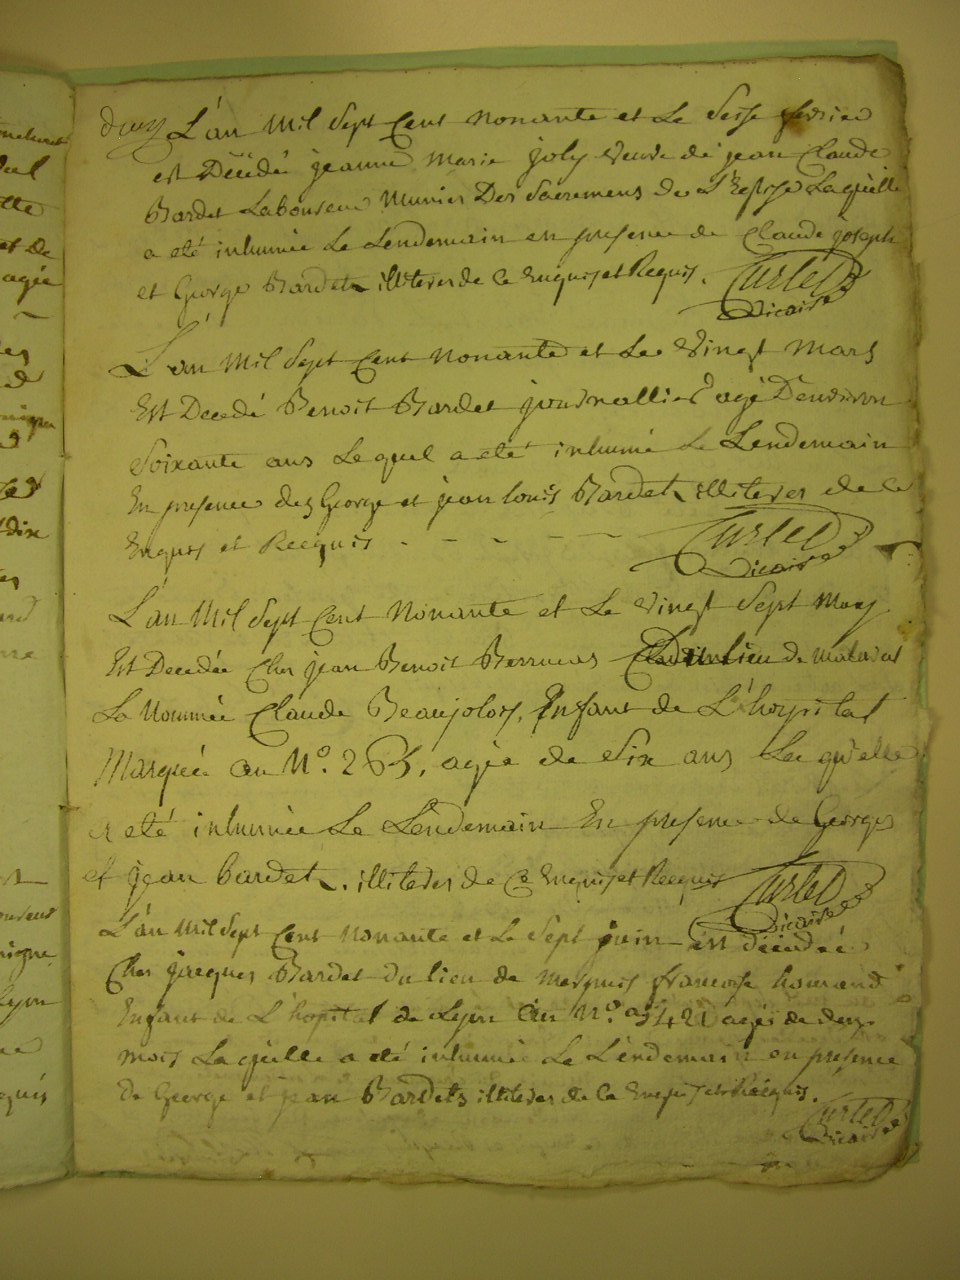 L'an Mil Sept Cent nonante et Le Seise fevrier
est Décédé jeanne Marie joly veuve de jean Claude
Bardet Laboureur Munier Des Sacremens de L'Eglise Laquelle
a eté inhumée Le Lendemain en presence de Claude joseph
et George Bardet illiteres de ce Enquis et Requis. Curlet
Vicaire
L'an Mil Sept Cent nonante et Le Vingt Mars
Est Decedé Benoit Bardet journallier agé D'environ
Soixante ans Lequel a eté inhumé Le Lendemain
En presence des George et jean louis Bardet illiteres de ce
Enquis et Recquis - - - - - Curlet
Vicaire
L'an Mil Sept Cent Nonante et Le Vingt Sept May
Est Decedée Chez jean Benoit du lieu de
La Nommée Claude Beaujoloy, Enfant de L'hopital
Marquée au N°. agée de Six ans La quelle
a eté inhumée Le Lendemain En presence de George
et jean bardet. illiteres de Ce Enquis et Recquis Curlet
Vicaire
L'an Mil Sept Cent Nonante et Le Sept juin est décedée
Chez jacques Bardet du lieu de francoise
Enfant de L'hopital de Lyon au N°. agée de deux
mois Laquelle a eté inhumée Le Lendemain en presence
de George et jean Bardets illiteres de Ce Enquis et Recquis.
Curlet
Vicaire